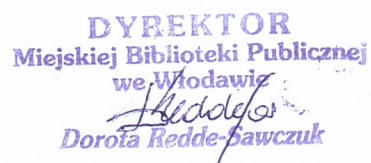 DYREKTOR
Miejskiej Biblioteki Publicznej
we Włodawie
Dorota Redde-Sawczuk